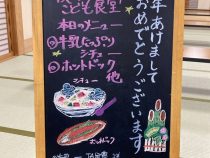 こども食堂
本日のメニュー
①牛乳たっぷり
シチュー
②ホットドック
他
シチュー
ホットドック
年 あけまして
おめでとうございます!